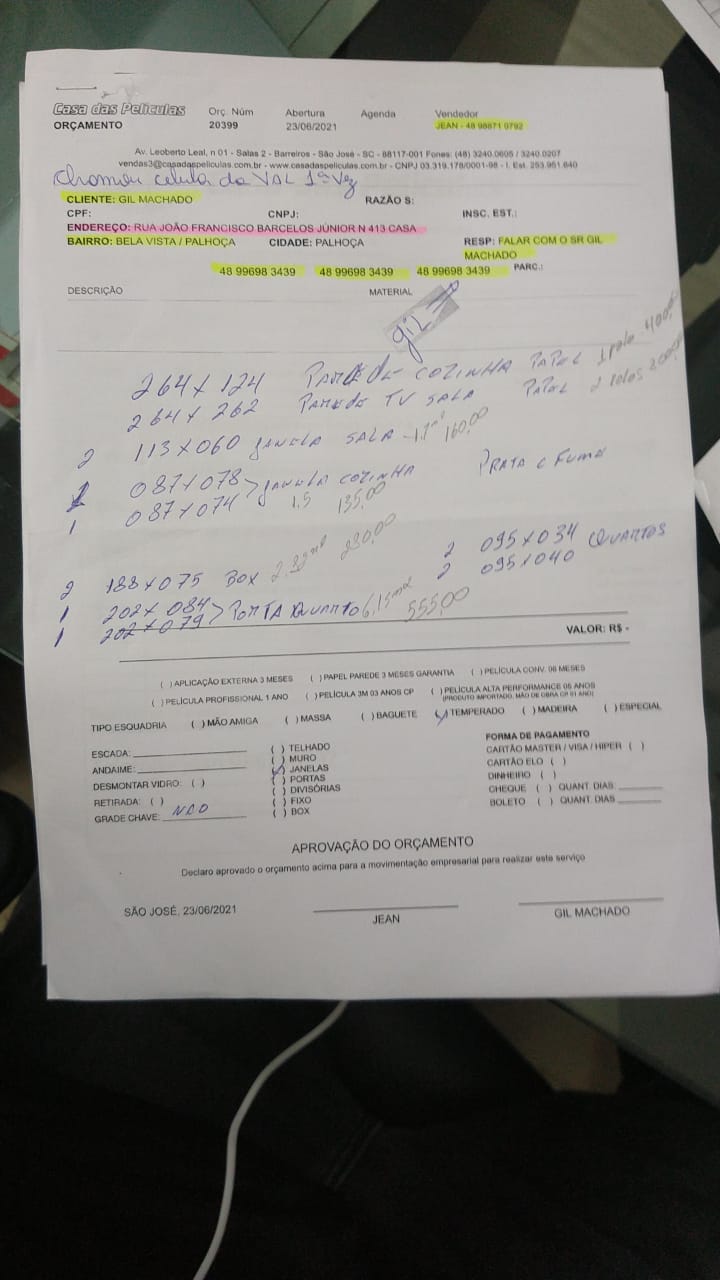 Casa das Películas Orç. Núm Abertura Agenda Vendedor
ORÇAMENTO 20399 23/06/2021 JEAN - 48 98871 0792
Av. Leoberto Leal, n 01 - Salas 2 - Barreiros - São José - SC - 88117-001 Fones: (48) 3240.0605 / 3240.0207
vendas3@casadaspeliculas.com.br - www.casadaspeliculas.com.br - CNPJ 03.319.178/0001-98 - I. Est. 253.961.640
Chamar celular da VAL 1ª Vez
CLIENTE: GIL MACHADO RAZÃO S:
CPF: CNPJ: INSC. EST.:
ENDEREÇO: RUA JOÃO FRANCISCO BARCELOS JÚNIOR N 413 CASA
BAIRRO: BELA VISTA / PALHOÇA CIDADE: PALHOÇA RESP: FALAR COM O SR GIL
MACHADO
48 99698 3439 48 99698 3439 48 99698 3439 PARC.:
DESCRIÇÃO MATERIAL
GIL
264 X 124 PAREDE COZINHA PAPEL 1 rolo 400,00
264 X 262 PAREDE TV SALA PAPEL 2 rolos
2 113 X 060 JANELA SALA 160,00
1 087 X 078 > JANELA COZINHA PRATA e FUMê
1 087 X 074 1.5 135,00
2 095 X 034 QUARTOS
2 188 X 075 BOX 230,00 2 095 X 040
1 202 X 084 > PORTA QUARTO 6,15 m2 555,00
1 202 X 079
VALOR: R$ -
( ) APLICAÇÃO EXTERNA 3 MESES ( ) PAPEL PAREDE 3 MESES GARANTIA ( ) PELÍCULA CONV. 06 MESES
( ) PELÍCULA PROFISSIONAL 1 ANO ( ) PELÍCULA 3M 03 ANOS CP ( ) PELÍCULA ALTA PERFORMANCE 05 ANOS
(PRODUTO IMPORTADO, MÃO DE OBRA CP 01 ANO)
TIPO ESQUADRIA ( ) MÃO AMIGA ( ) MASSA ( ) BAGUETE (✓) TEMPERADO ( ) MADEIRA ( ) ESPECIAL
ESCADA: ( ) TELHADO FORMA DE PAGAMENTO
ANDAIME: ( ) MURO CARTÃO MASTER / VISA / HIPER ( )
DESMONTAR VIDRO: ( ) (✓) JANELAS CARTÃO ELO ( )
RETIRADA: ( ) ( ) PORTAS DINHEIRO ( )
GRADE CHAVE: NÃO ( ) DIVISÓRIAS CHEQUE ( ) QUANT DIAS
( ) FIXO BOLETO ( ) QUANT DIAS
( ) BOX
APROVAÇÃO DO ORÇAMENTO
Declaro aprovado o orçamento acima para a movimentação empresarial para realizar este serviço
SÃO JOSÉ, 23/06/2021
JEAN GIL MACHADO